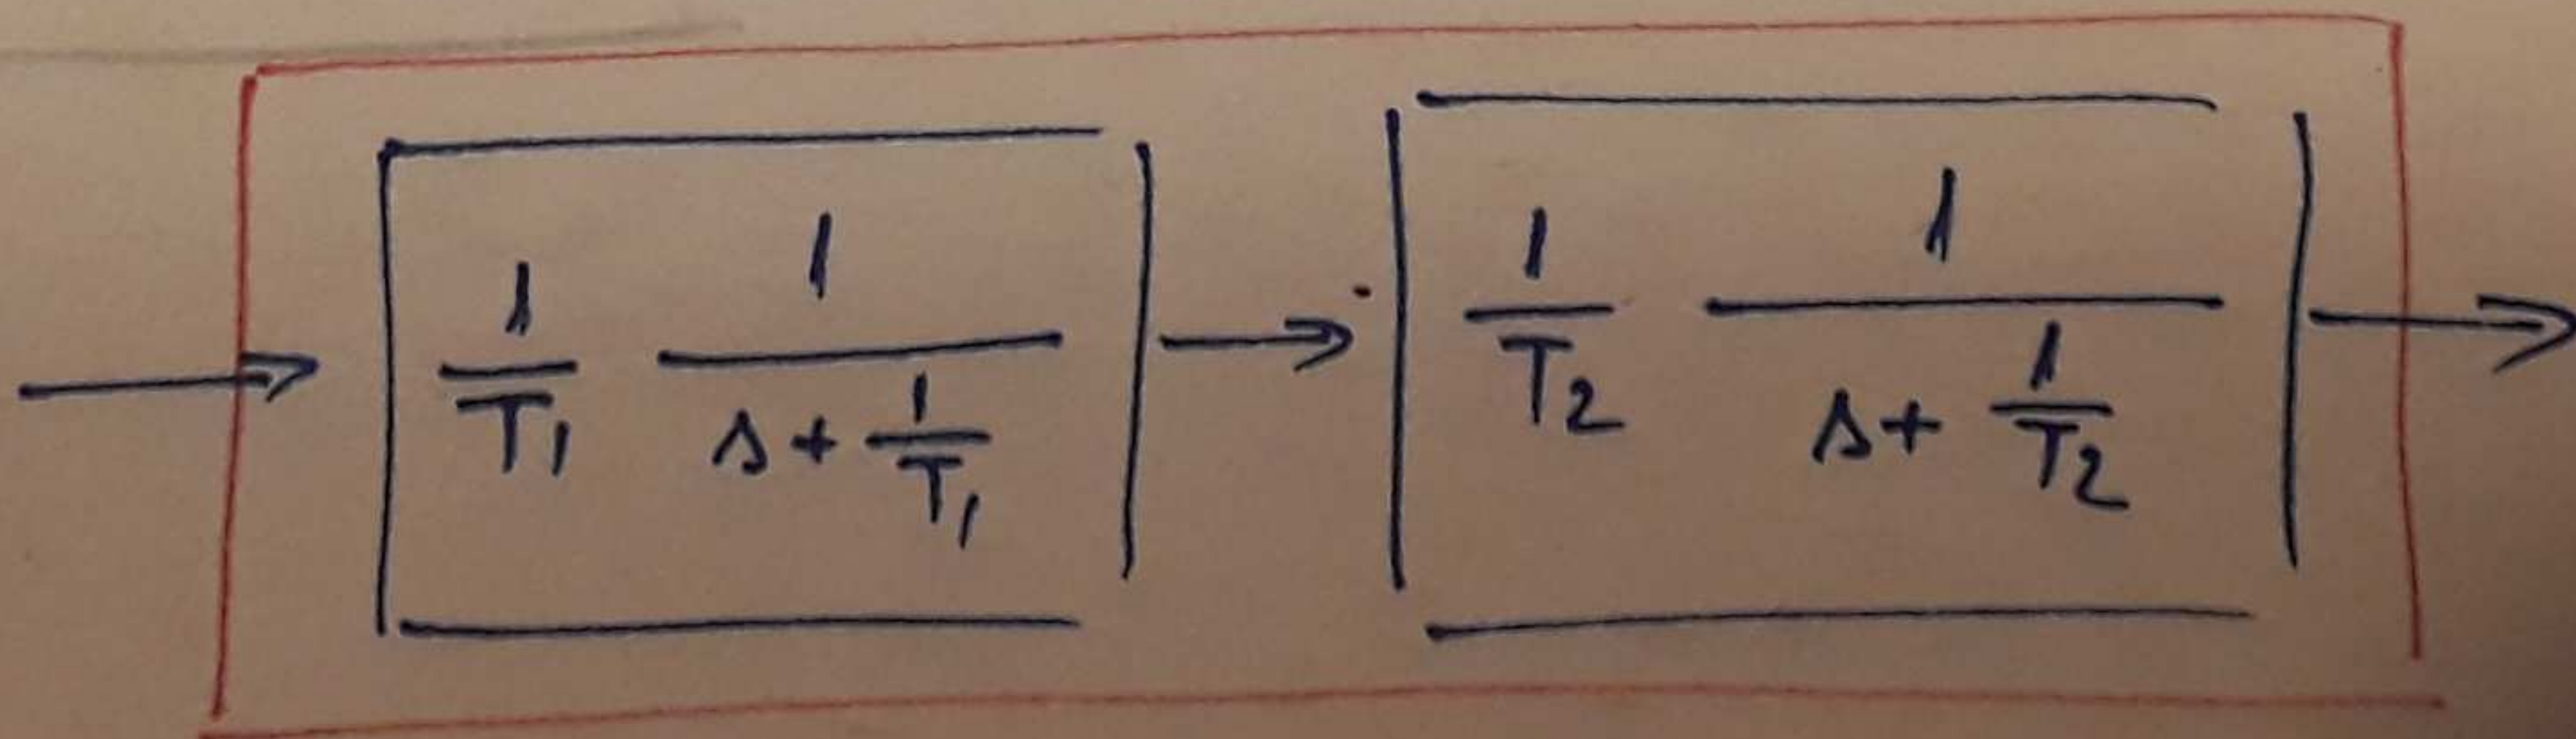 1/T1 1/(s+1/T1) → 1/T2 1/(s+1/T2) →